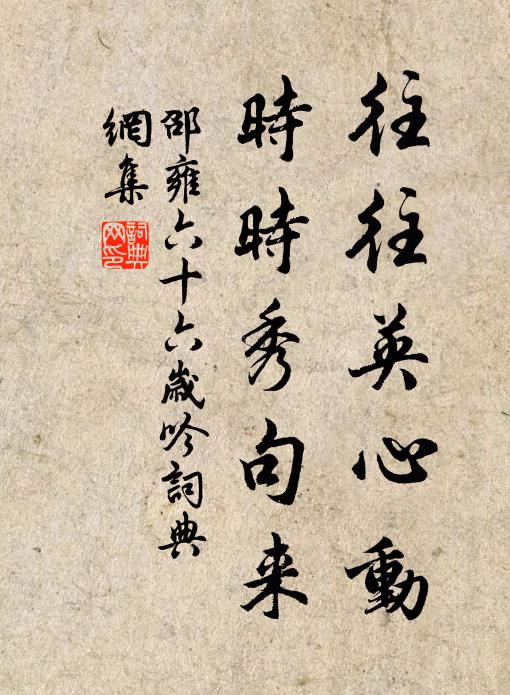 往往英心動
時時秀句来
邵雍六十六歲吟詞典
網集
詞典
网印